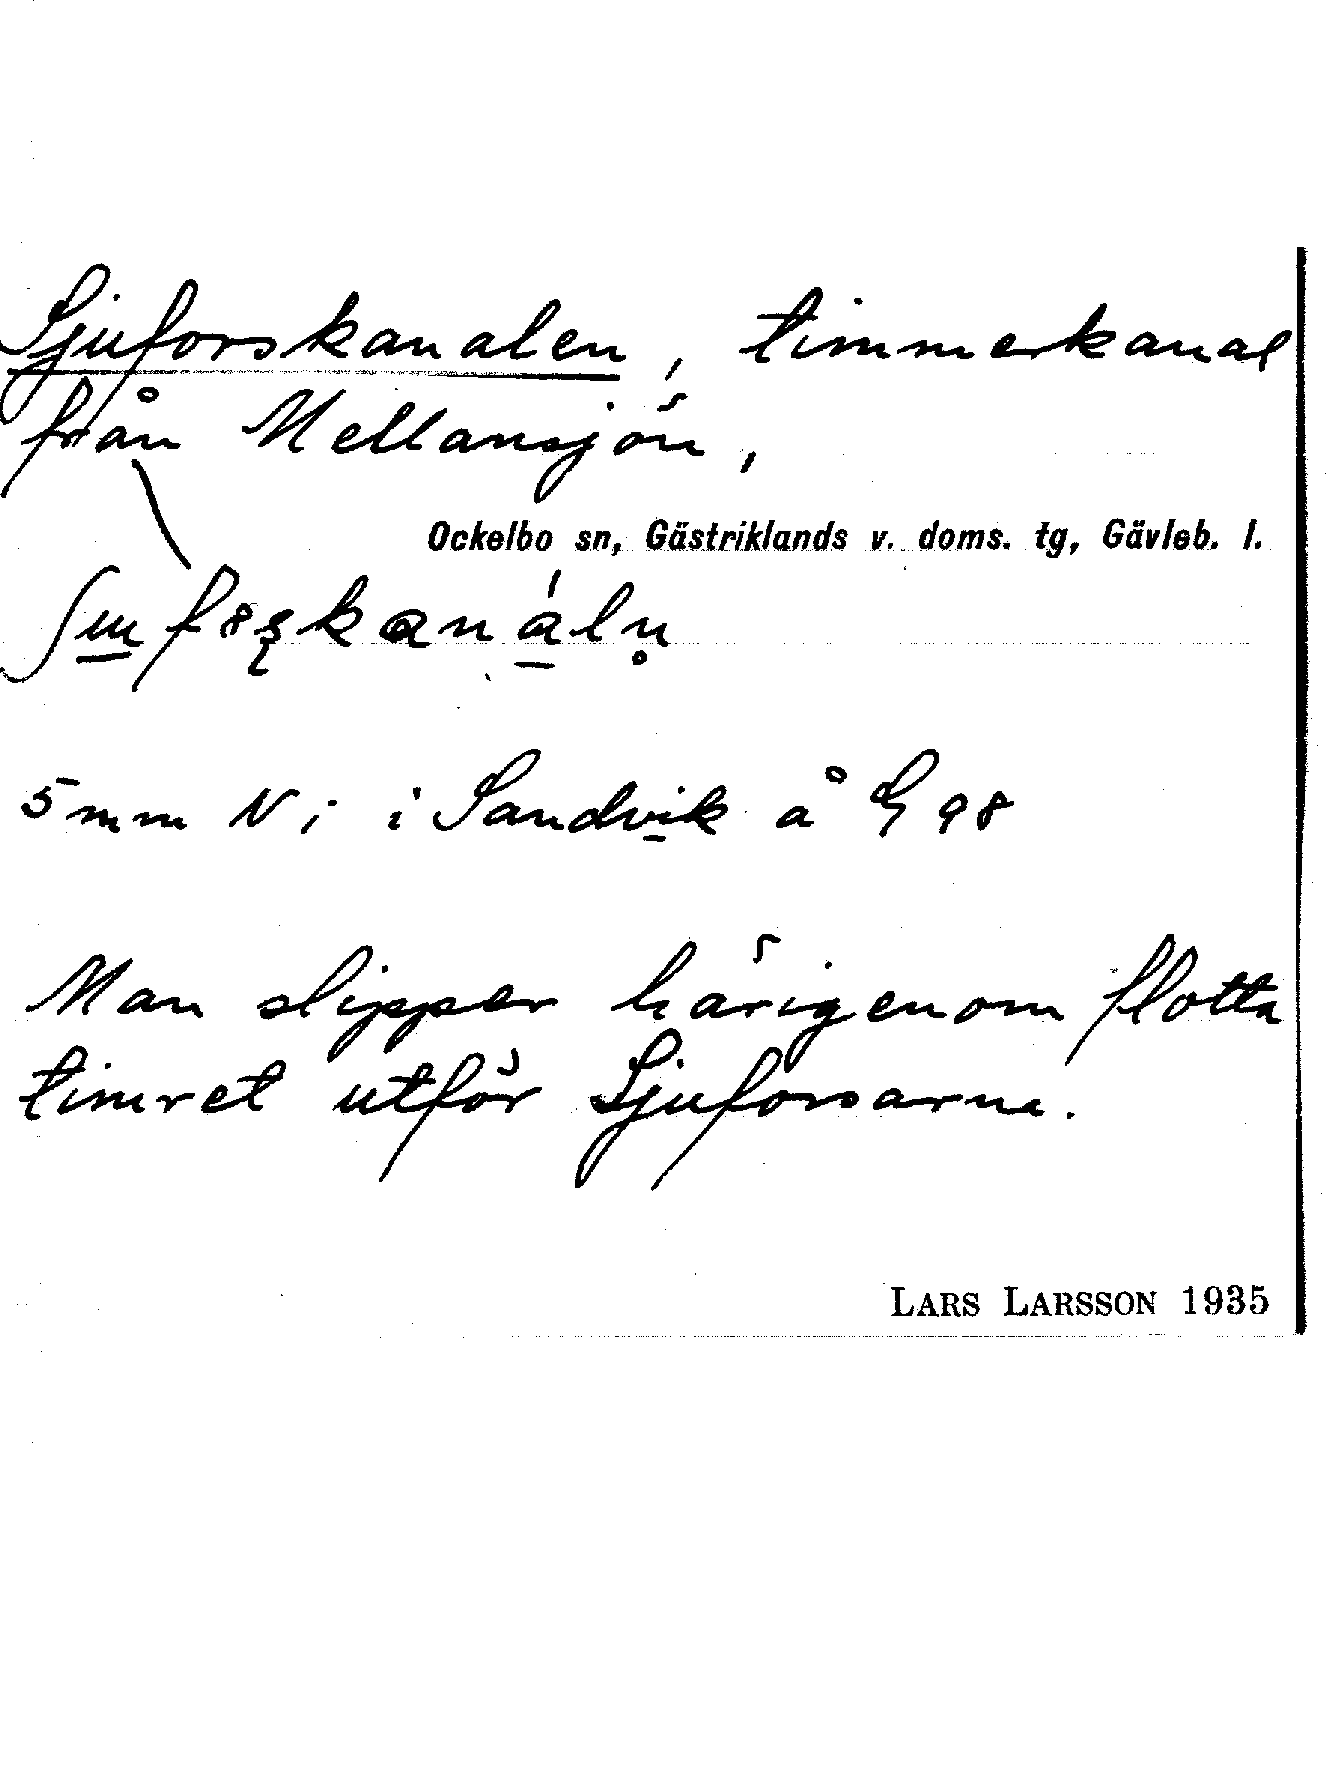 Sjuforskanalen, timmerkanal
från Mellansjön,
Ockelbo sn, Gästriklands v. doms. tg, Gävleb. l.
5 mm N i i Sandvik å G 98
Man slipper härigenom flotta
timret utför Sjuforsarna.
LARS LARSSON 1935